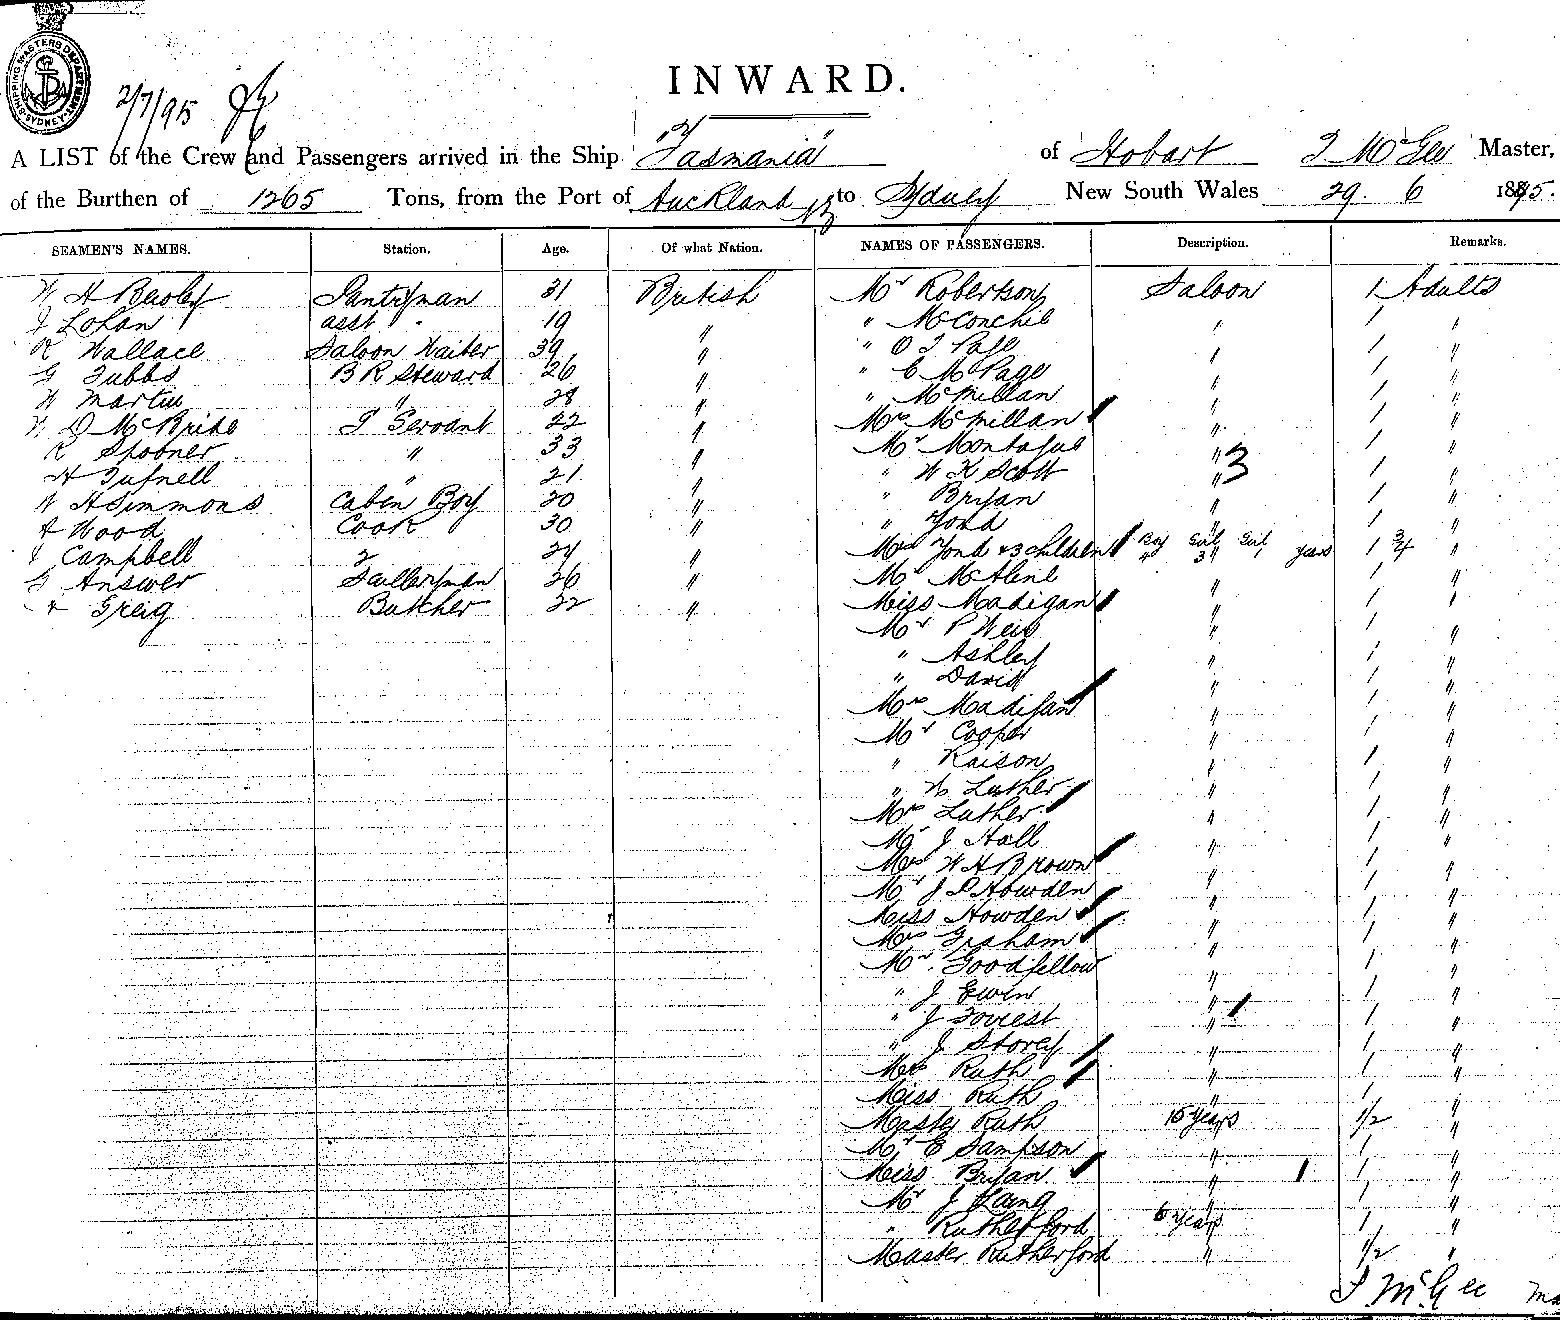 SHIPPING MASTERS DEPARTMENT SYDNEY
2/7/95
INWARD.
A LIST of the Crew and Passengers arrived in the Ship "Tasmania" of Hobart T McGee Master,
of the Burthen of 1265 Tons, from the Port of Auckland NZ to Sydney New South Wales 29. 6 1895.
SEAMEN'S NAMES. Station. Age. Of what Nation. NAMES OF PASSENGERS. Description. Remarks.
W H Bagley Pantryman 31 British Mr Robertson Saloon 1 Adults
J Lohan asst " 19 " " McConchie " 1 "
R Wallace Saloon Waiter 39 " " O T Page " 1 "
G Tubbs B R Steward 26 " " E M Page " 1 "
W Martin " 28 " " McMillan " 1 "
W D McBride P Servant 22 " Mrs McMillan " 1 "
R Spooner " 33 " Mr Montague " 1 "
H Tufnell " 21 " " W H Scott " 3 1 "
W H Simmons Cabin Boy 20 " " Bryan " 1 "
A Wood Cook 30 " " Yond " 1 "
J Campbell 2 24 " Mrs Yond & 3 children Boy Girl Girl 3 1 years 1 3/4
G Answer Sculleryman 26 " Mr McAlene " 1 "
Greig Butcher 22 " Miss Madigan " 1 "
Mr P Weis " 1 "
" Ashley " 1 "
" David " 1 "
Mrs Madigan " 1 "
Mr Cooper " 1 "
" Raison " 1 "
" W Luther " 1 "
Mrs Luther " 1 "
Mr J Hall " 1 "
Mrs W H Brown " 1 "
Mr J P Howden " 1 "
Miss Howden " 1 "
Mrs Graham " 1 "
Mr Goodfellow " 1 "
" J Ewin " 1 "
" J Forrest " 1 1 "
" J Storey " 1 "
Mrs Ruth " 1 "
Miss Ruth " 1 "
Master Ruth 10 years 1/2 "
Mr E Sampson " 1 "
Miss Bryan " 1 1 "
Mr J Laing " 1 "
" Rutherford 6 years 1 "
Master Rutherford " 1/2 "
T McGee